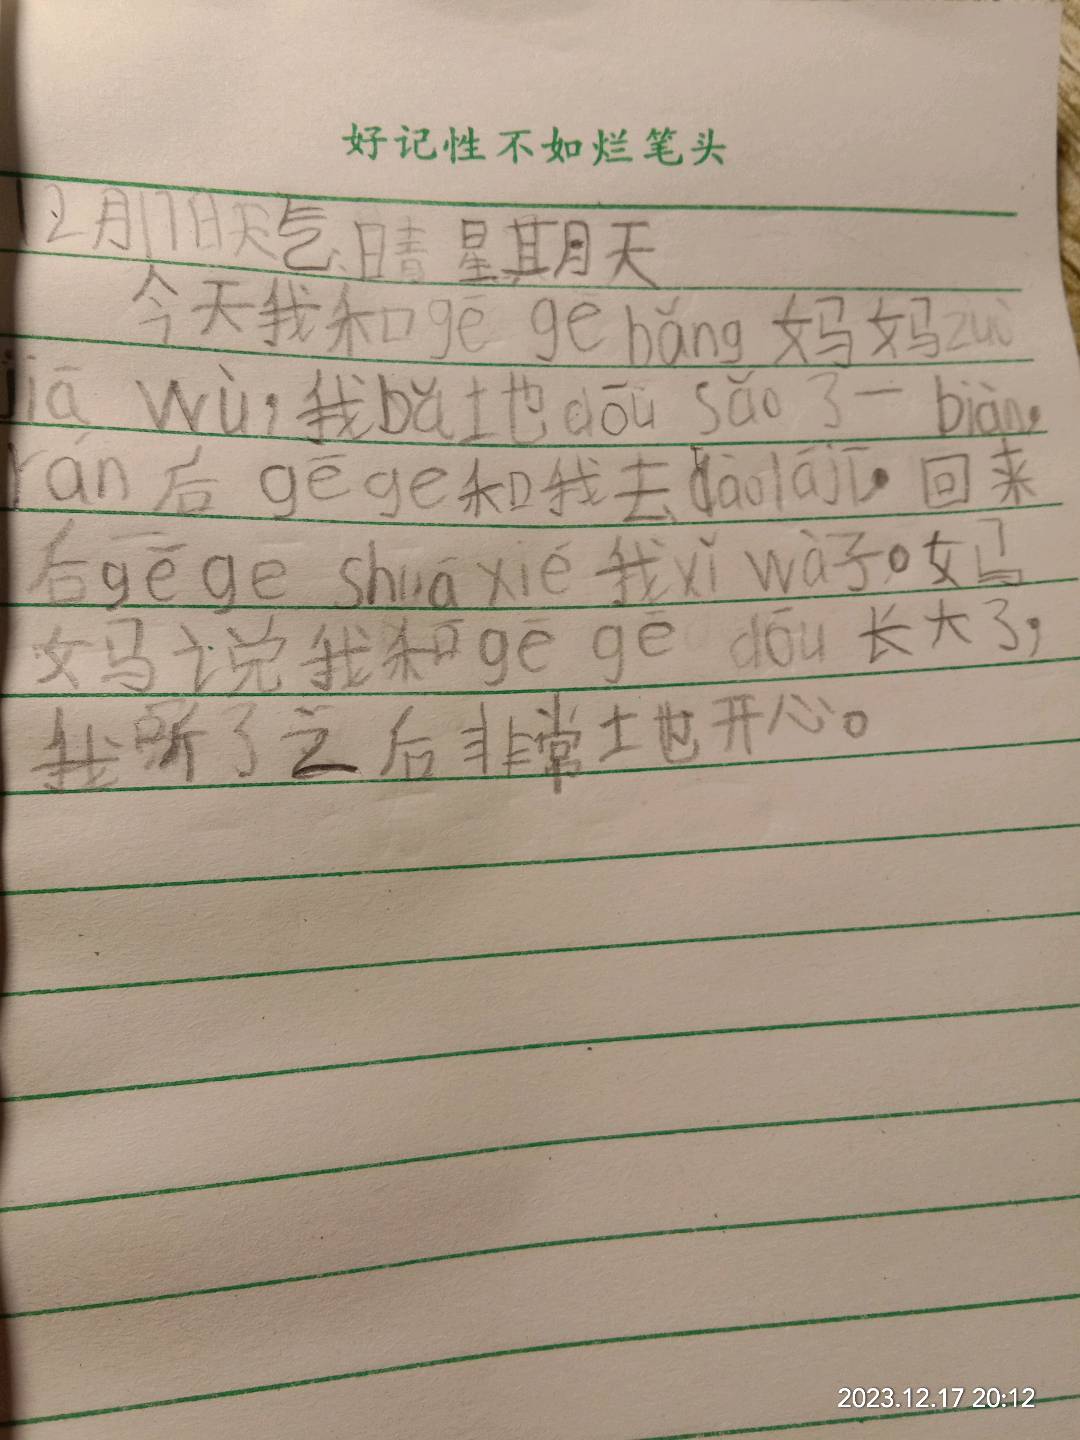 好记性不如烂笔头
12月17日天气晴星期天
今天我和gē ge bǎng 妈妈zuò
jiā wù，我bǎ地dōu sǎo了一biàn，
rán后gēge和我去dàolājī。回来
后gēge shuā xié 我xǐ wà子。妈
妈说我和gē gē dōu 长大了，
我听了之后非常地开心。
2023.12.17 20:12